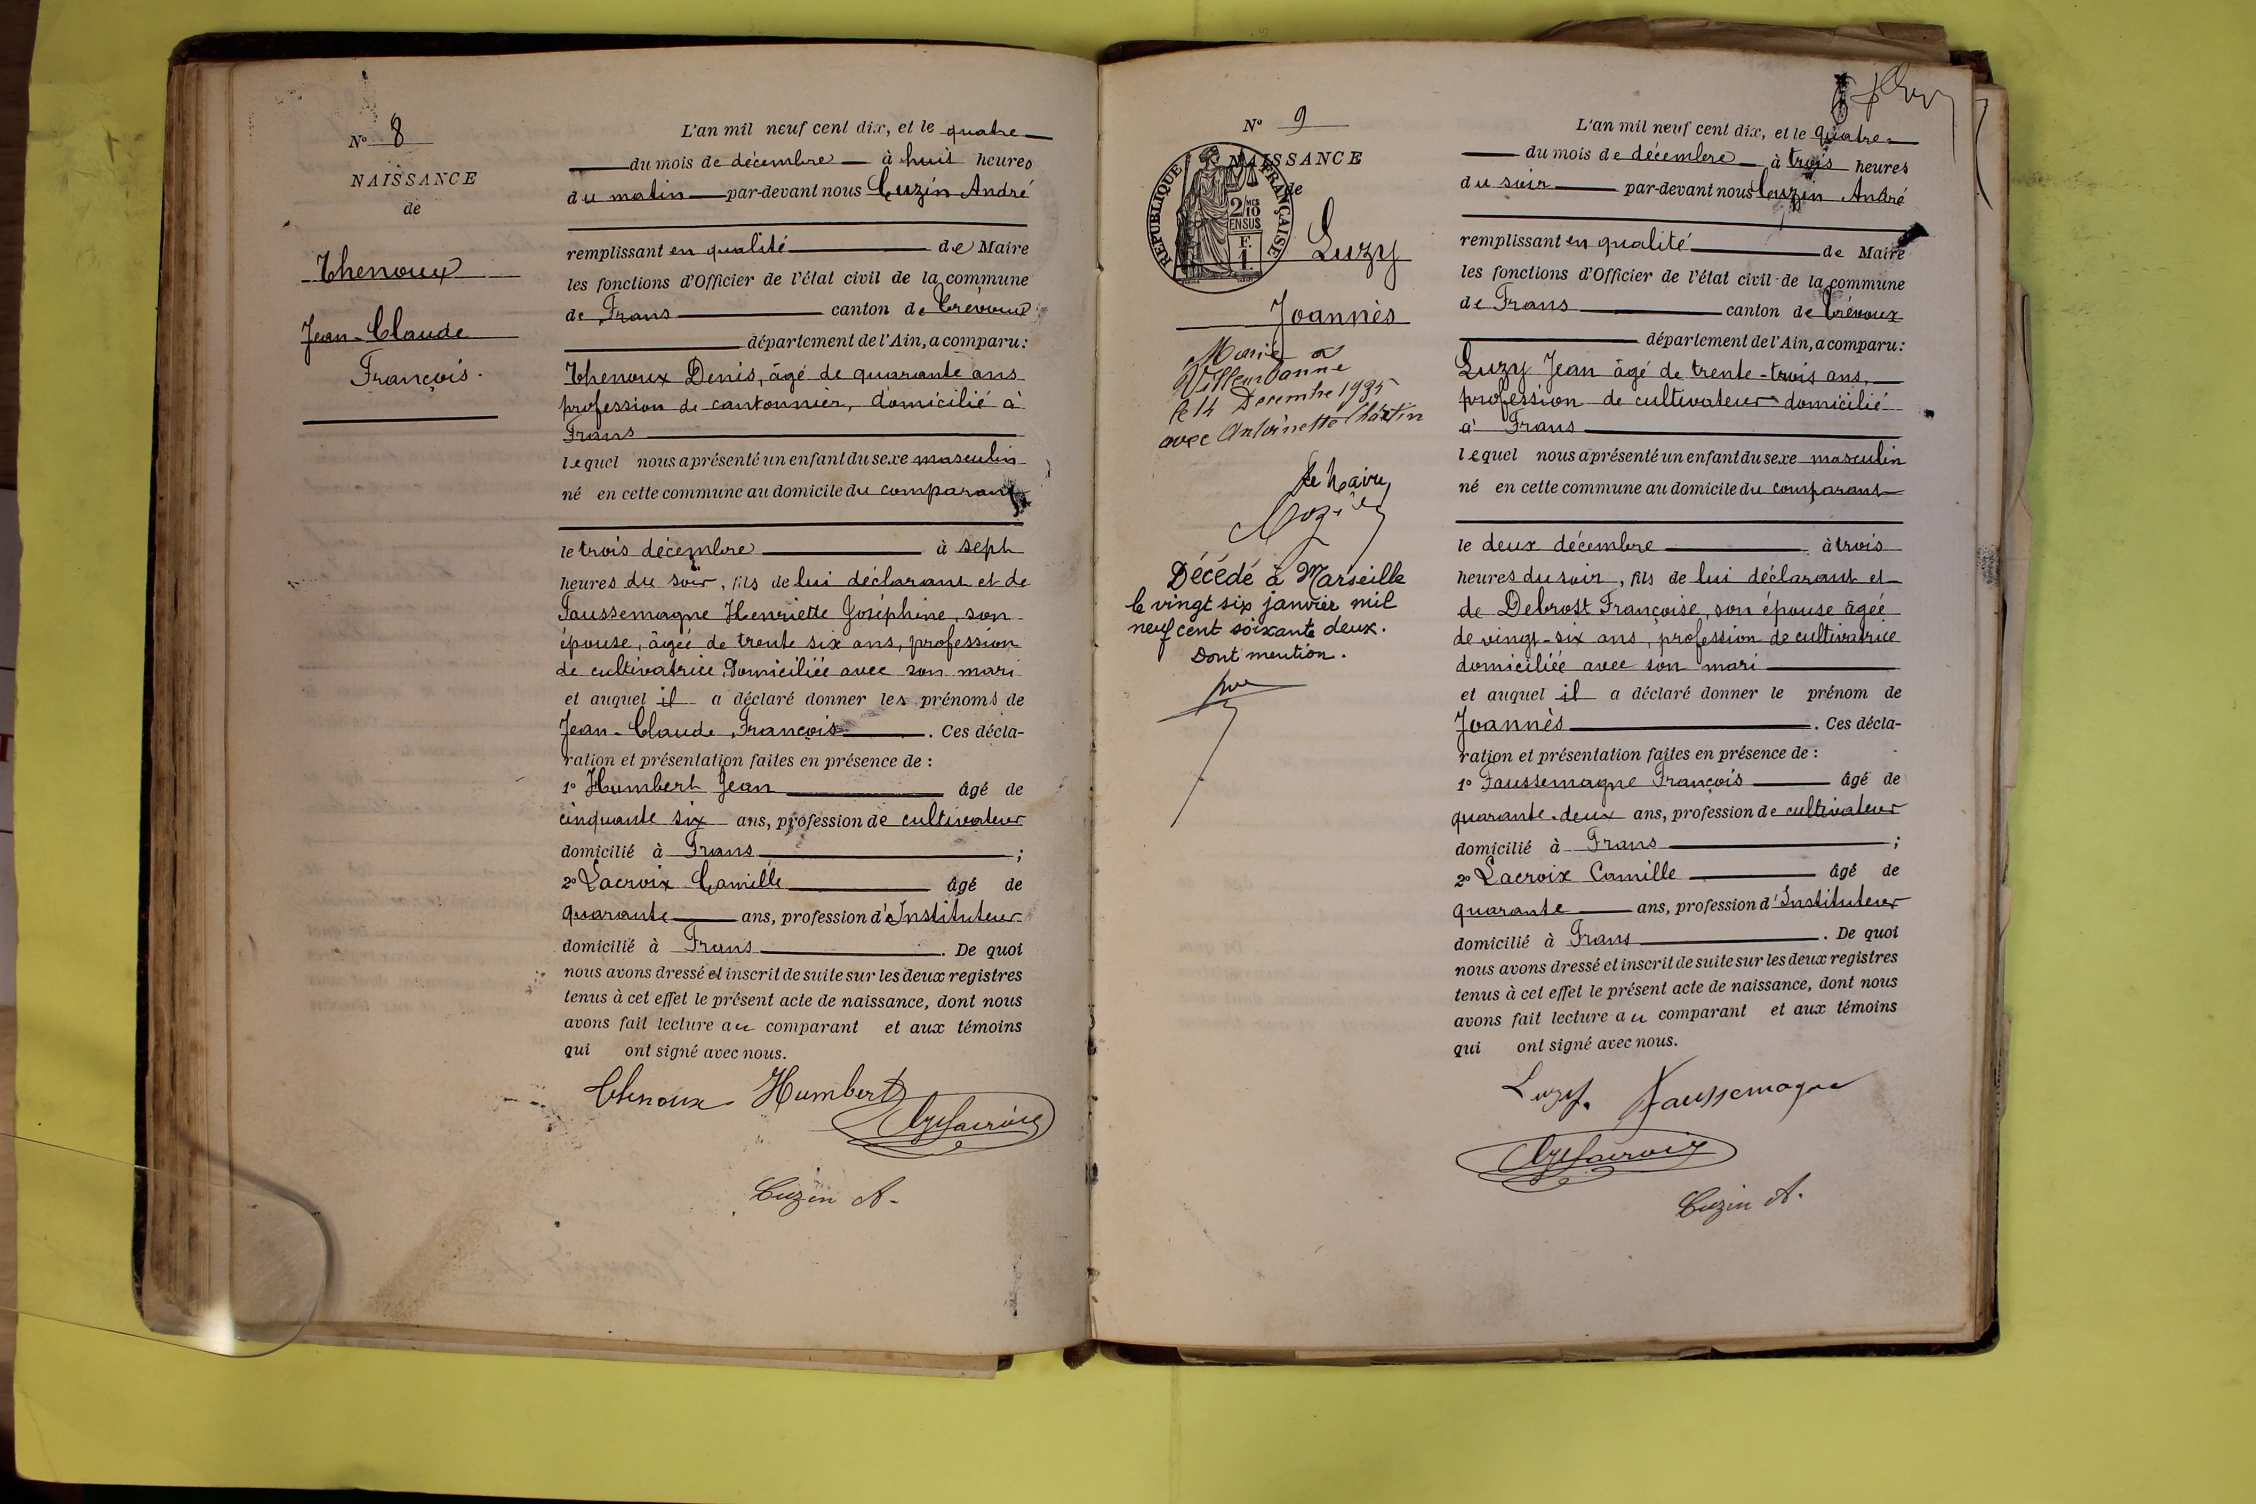 N° 8
NAISSANCE
de
Thenoux
Jean-Claude
François.
L'an mil neuf cent dix, et le quatre
du mois de décembre à huit heures
du matin par-devant nous Cuzin André
remplissant en qualité de Maire
les fonctions d'Officier de l'état civil de la commune
de Frans canton de Trévoux
département de l'Ain, a comparu:
Thenoux Denis, âgé de quarante ans
profession de cantonnier, domicilié à
Frans
lequel nous a présenté un enfant du sexe masculin
né en cette commune au domicile du comparant
le trois décembre à sept
heures du soir, fils de lui déclarant et de
Faussemagne Henriette Joséphine, son
épouse, âgée de trente six ans, profession
de cultivatrice, domiciliée avec son mari
et auquel il a déclaré donner les prénoms de
Jean-Claude, François. Ces décla-
ration et présentation faites en présence de :
1° Humbert Jean âgé de
cinquante six ans, profession de cultivateur
domicilié à Frans ;
2° Lacroix Camille âgé de
quarante ans, profession d'Instituteur
domicilié à Frans. De quoi
nous avons dressé et inscrit de suite sur les deux registres
tenus à cet effet le présent acte de naissance, dont nous
avons fait lecture au comparant et aux témoins
qui ont signé avec nous.
Thenoux Humbert
Lacroix
Cuzin A.
N° 9
NAISSANCE
de
RÉPUBLIQUE FRANÇAISE
2/10
EN SUS
F.
1.
Luzy
Joannès
Marié à
Villeurbanne
le 14 Décembre 1935
avec Antoinette Chartin
Le Maire
Décédé à Marseille
le vingt six janvier mil
neuf cent soixante deux.
Dont mention.
L'an mil neuf cent dix, et le quatre
du mois de décembre à trois heures
du soir par-devant nous Cuzin André
remplissant en qualité de Maire
les fonctions d'Officier de l'état civil de la commune
de Frans canton de Trévoux
département de l'Ain, a comparu:
Luzy Jean âgé de trente-trois ans,
profession de cultivateur domicilié
à Frans
lequel nous a présenté un enfant du sexe masculin
né en cette commune au domicile du comparant
le deux décembre à trois
heures du soir, fils de lui déclarant et
de Debrost Françoise, son épouse âgée
de vingt-six ans, profession de cultivatrice
domiciliée avec son mari
et auquel il a déclaré donner le prénom de
Joannès. Ces décla-
ration et présentation faites en présence de :
1° Faussemagne François âgé de
quarante-deux ans, profession de cultivateur
domicilié à Frans ;
2° Lacroix Camille âgé de
quarante ans, profession d'Instituteur
domicilié à Frans. De quoi
nous avons dressé et inscrit de suite sur les deux registres
tenus à cet effet le présent acte de naissance, dont nous
avons fait lecture au comparant et aux témoins
qui ont signé avec nous.
Luzy. Faussemagne
Lacroix
Cuzin A.